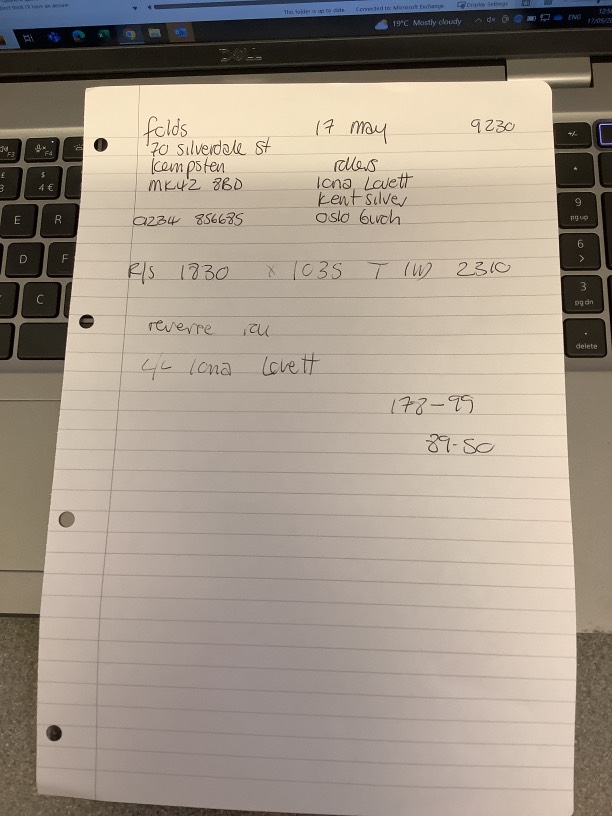 This folder is up to date. Connected to: Microsoft Exchange Display Settings
19°C Mostly cloudy ENG
17/05/2
DELL
folds 17 may 9230
70 silverdale st
kempsten rollers
mk42 8BD Iona Lovett
kent silver
01234 856685 oslo
R/S 1830 x 1035 T (W) 2310
reverse
c/c Iona Lovett
178-99
89-50
F3
F4
3
4 €
E
R
D
F
C
+/-
*
9
pg up
6
>
3
pg dn
.
delete